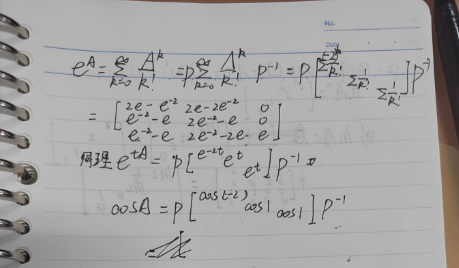 No.
Date
e^A = Σ_{k=0}^∞ A^k/k! = P Σ_{k=0}^∞ Λ^k/k! P^{-1} = P [Σ(-2)^k/k! Σ1/k! Σ1/k!] P^{-1}
= [2e-e^{-2} 2e-2e^{-2} 0
e^{-2}-e 2e^{-2}-e 0
e^{-2}-e 2e^{-2}-2e e]
同理 e^{tA} = P [e^{-2t} e^t e^t] P^{-1}
cosA = P [cos(-2) cos1 cos1] P^{-1}